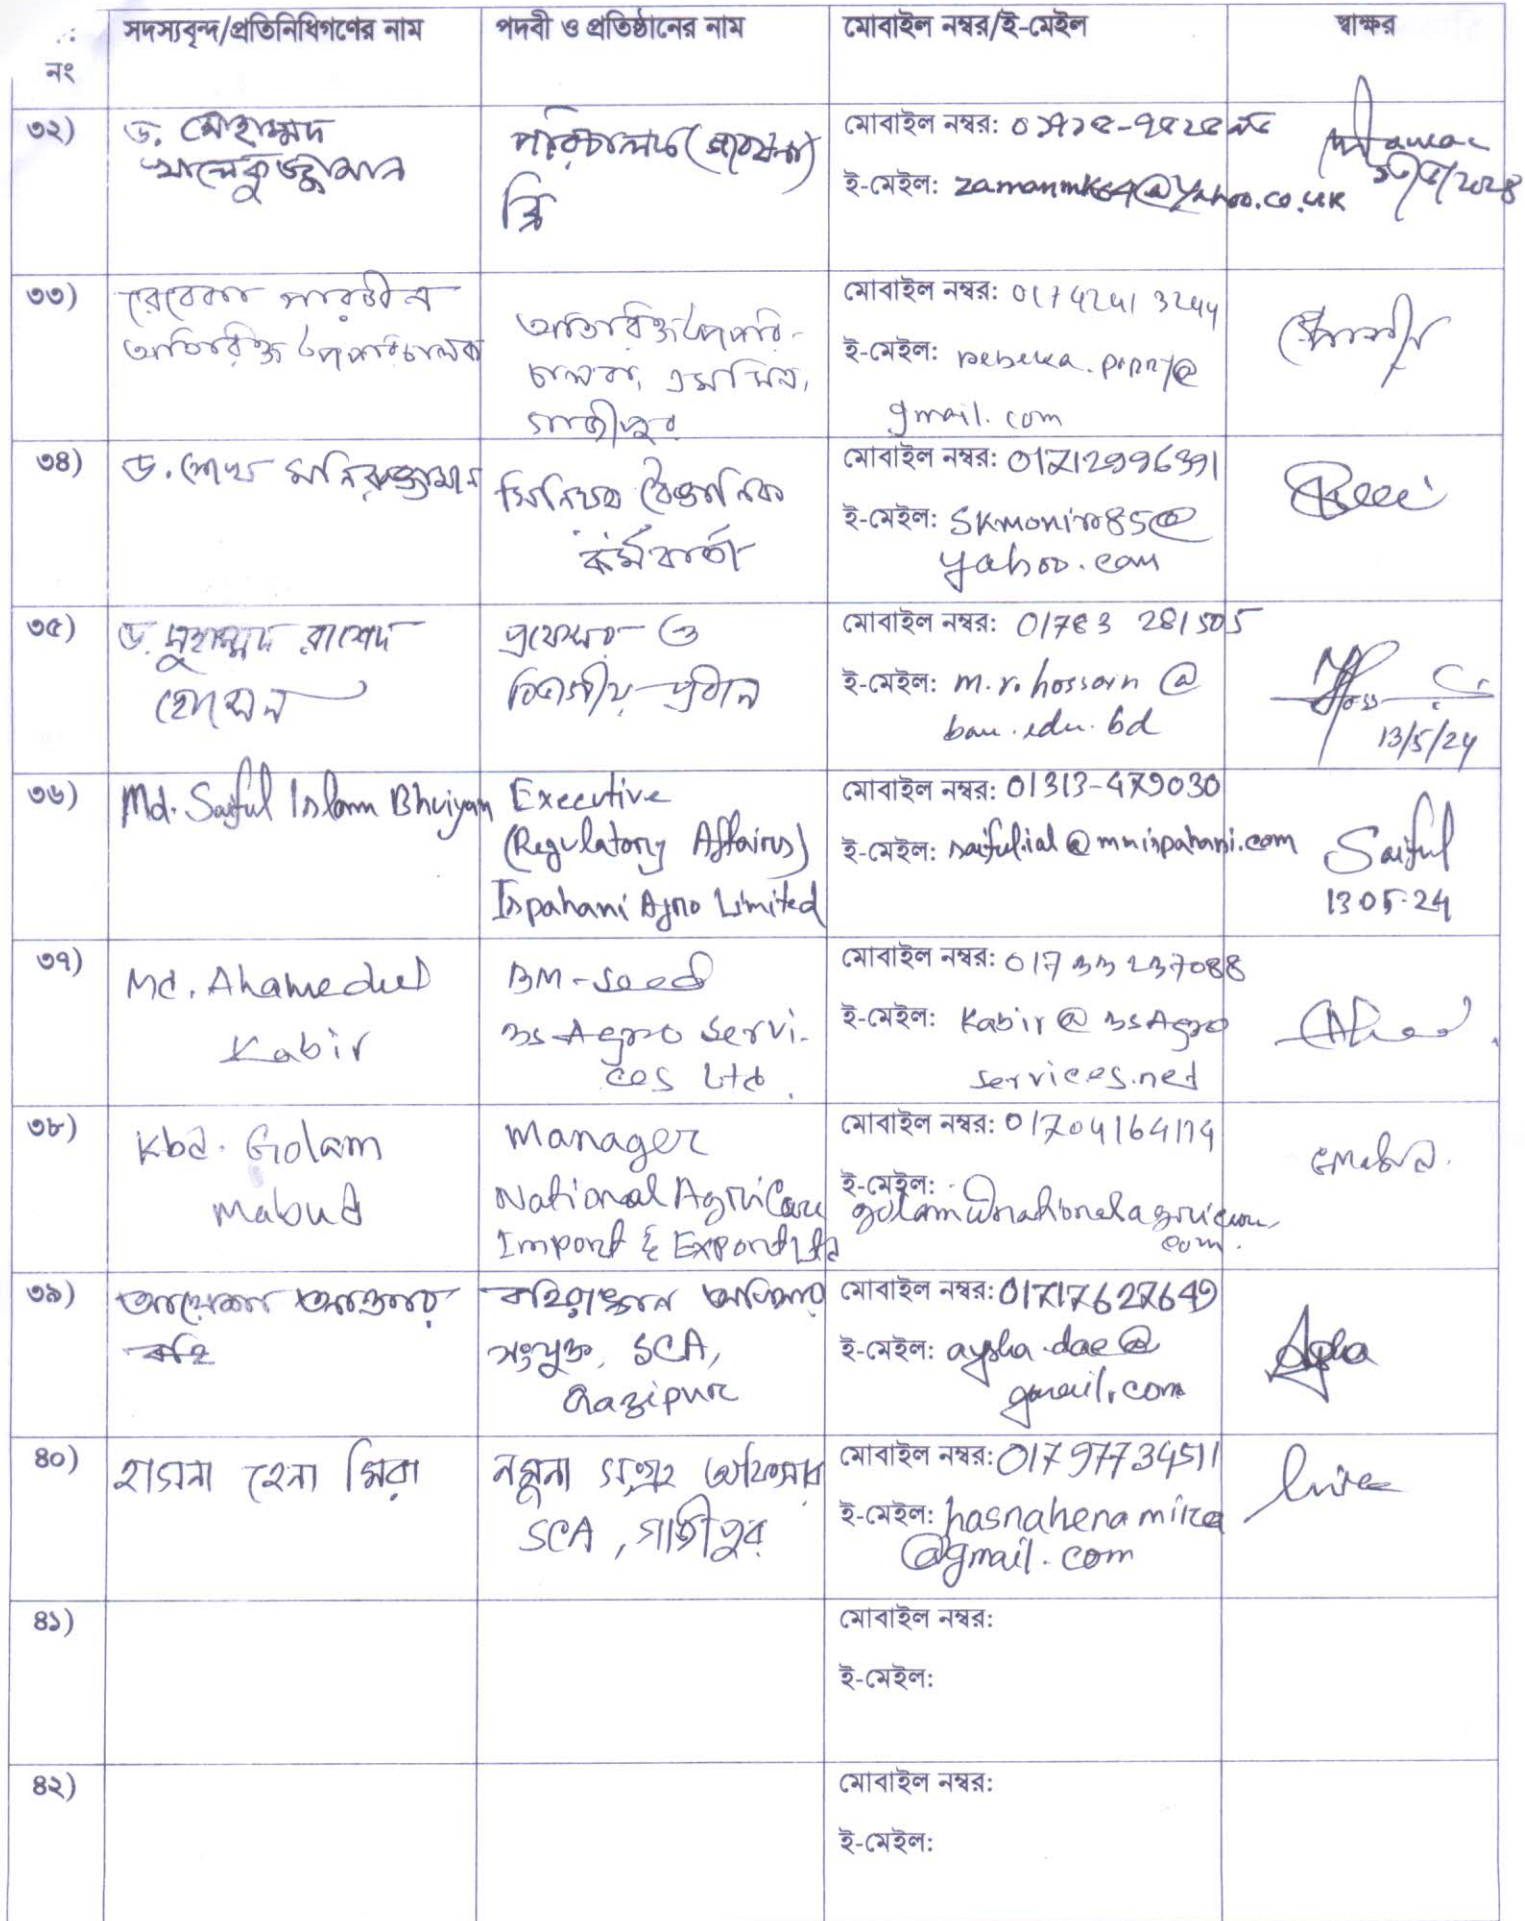 নং
সদস্যবৃন্দ/প্রতিনিধিগণের নাম
পদবী ও প্রতিষ্ঠানের নাম
মোবাইল নম্বর/ই-মেইল
স্বাক্ষর
৩২)
ড. মোহাম্মদ
খালেকুজ্জামান
পরিচালক (গবেষণা)
ব্রি
মোবাইল নম্বর:
ই-মেইল: zamanmk64@yahoo.co.uk
৩৩)
রেবেকা পারভীন
অতিরিক্ত উপপরিচালক
অতিরিক্ত উপপরি-
চালক,
গাজীপুর
মোবাইল নম্বর:
ই-মেইল:
gmail.com
৩৪)
ড. শেখ মনিরুজ্জামান
সিনিয়র বৈজ্ঞানিক
কর্মকর্তা
মোবাইল নম্বর: 01712996391
ই-মেইল: Skmonir85@
yahoo.com
৩৫)
ড. মুহাম্মদ রাশেদ
হোসেন
প্রফেসর ও
বিভাগীয় প্রধান
মোবাইল নম্বর: 01763 281505
ই-মেইল: m.r.hossain@
bau.edu.bd
13/5/24
৩৬)
Md. Saiful Islam Bhuiyan
Executive
(Regulatory Affairs)
Ispahani Agro Limited
মোবাইল নম্বর: 01313-479030
ই-মেইল: saiful.ial@mmispahani.com
Saiful
13.05.24
৩৭)
Md. Ahamedul
Kabir
BM-Seed
Agro Servi-
ces Ltd.
মোবাইল নম্বর: 01733237088
ই-মেইল:
services.net
৩৮)
Kbd. Golam
Mabud
Manager
National AgriCare
Import & Export Ltd
মোবাইল নম্বর: 01704164174
ই-মেইল:
golam@nationalagricare.
com.
৩৯)
আয়েশা আক্তার
বহিরাঙ্গন অফিসার
সংযুক্ত, SCA,
Gazipur
মোবাইল নম্বর: 01717627649
ই-মেইল: aysha.dae@
gmail.com
Aysha
৪০)
হাসনা হেনা মিরা
নমুনা সংগ্রহ অফিসার
SCA, গাজীপুর
মোবাইল নম্বর: 01797734511
ই-মেইল: hasnahenamira
@gmail.com
৪১)
মোবাইল নম্বর:
ই-মেইল:
৪২)
মোবাইল নম্বর:
ই-মেইল: